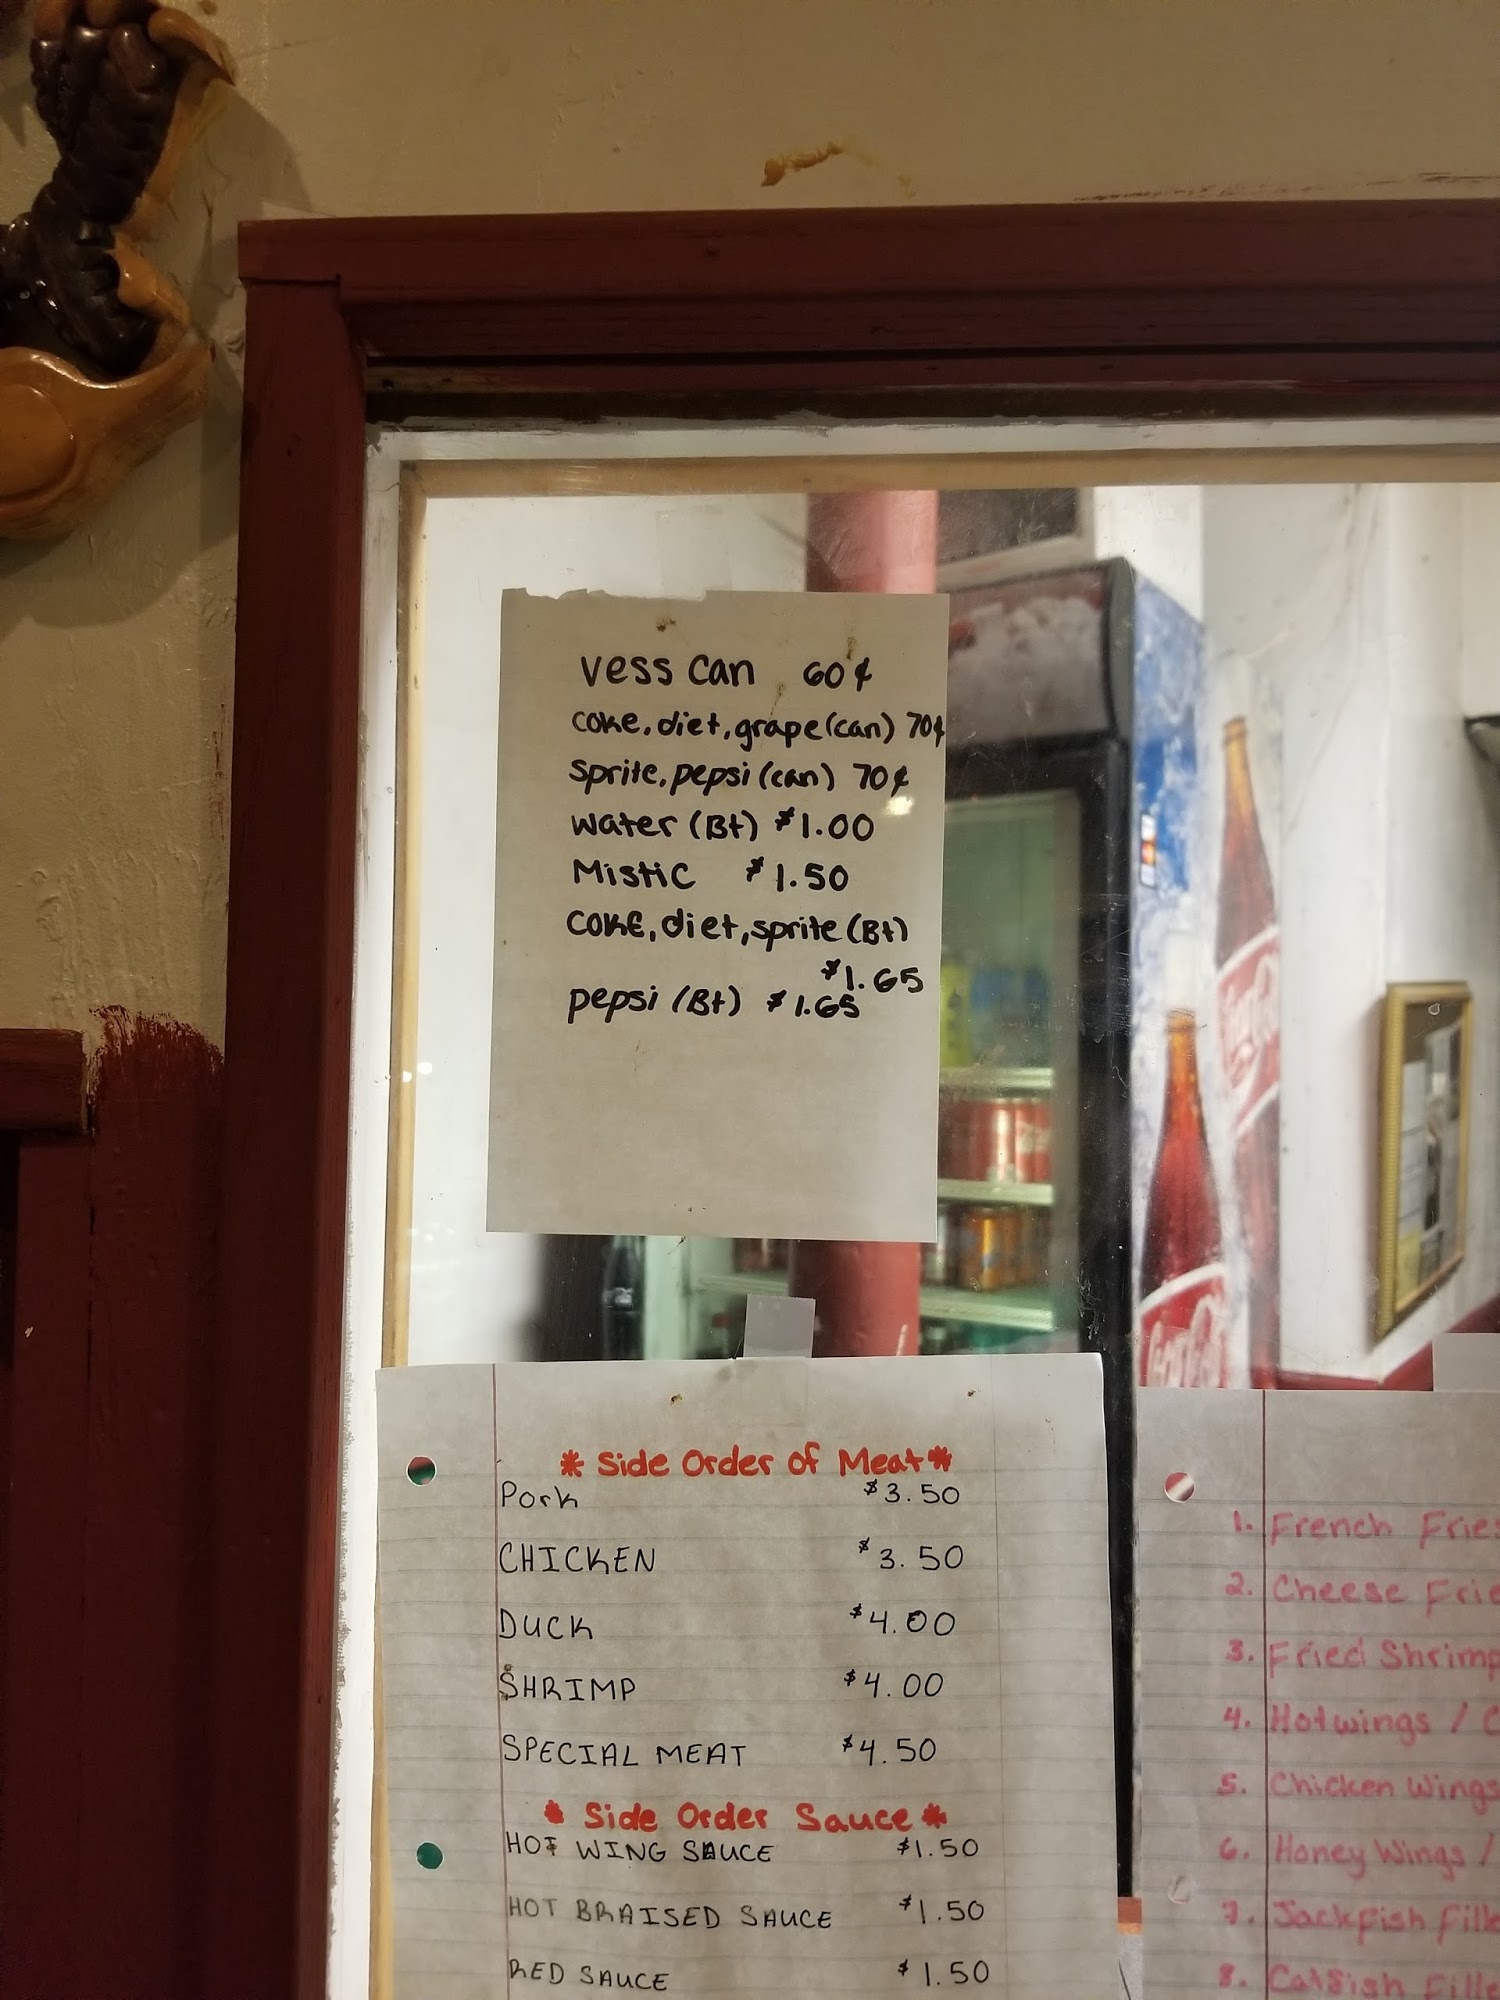 vess can 60¢
coke, diet, grape (can) 70¢
sprite, pepsi (can) 70¢
water (Bt) $1.00
Mistic $1.50
coke, diet, sprite (Bt)
$1.65
pepsi (Bt) $1.65
* Side Order of Meat *
Pork $3.50
CHICKEN $3.50
DUCK $4.00
SHRIMP $4.00
SPECIAL MEAT $4.50
* Side Order Sauce *
HOT WING SAUCE $1.50
HOT BRAISED SAUCE $1.50
RED SAUCE $1.50
1. French Fries
2. Cheese Frie
3. Fried Shrimp
4. Hotwings / C
5. Chicken Wings
6. Honey Wings /
7. Jackfish Fille
8. Catfish Fille
Coca-Cola
Coca-Cola